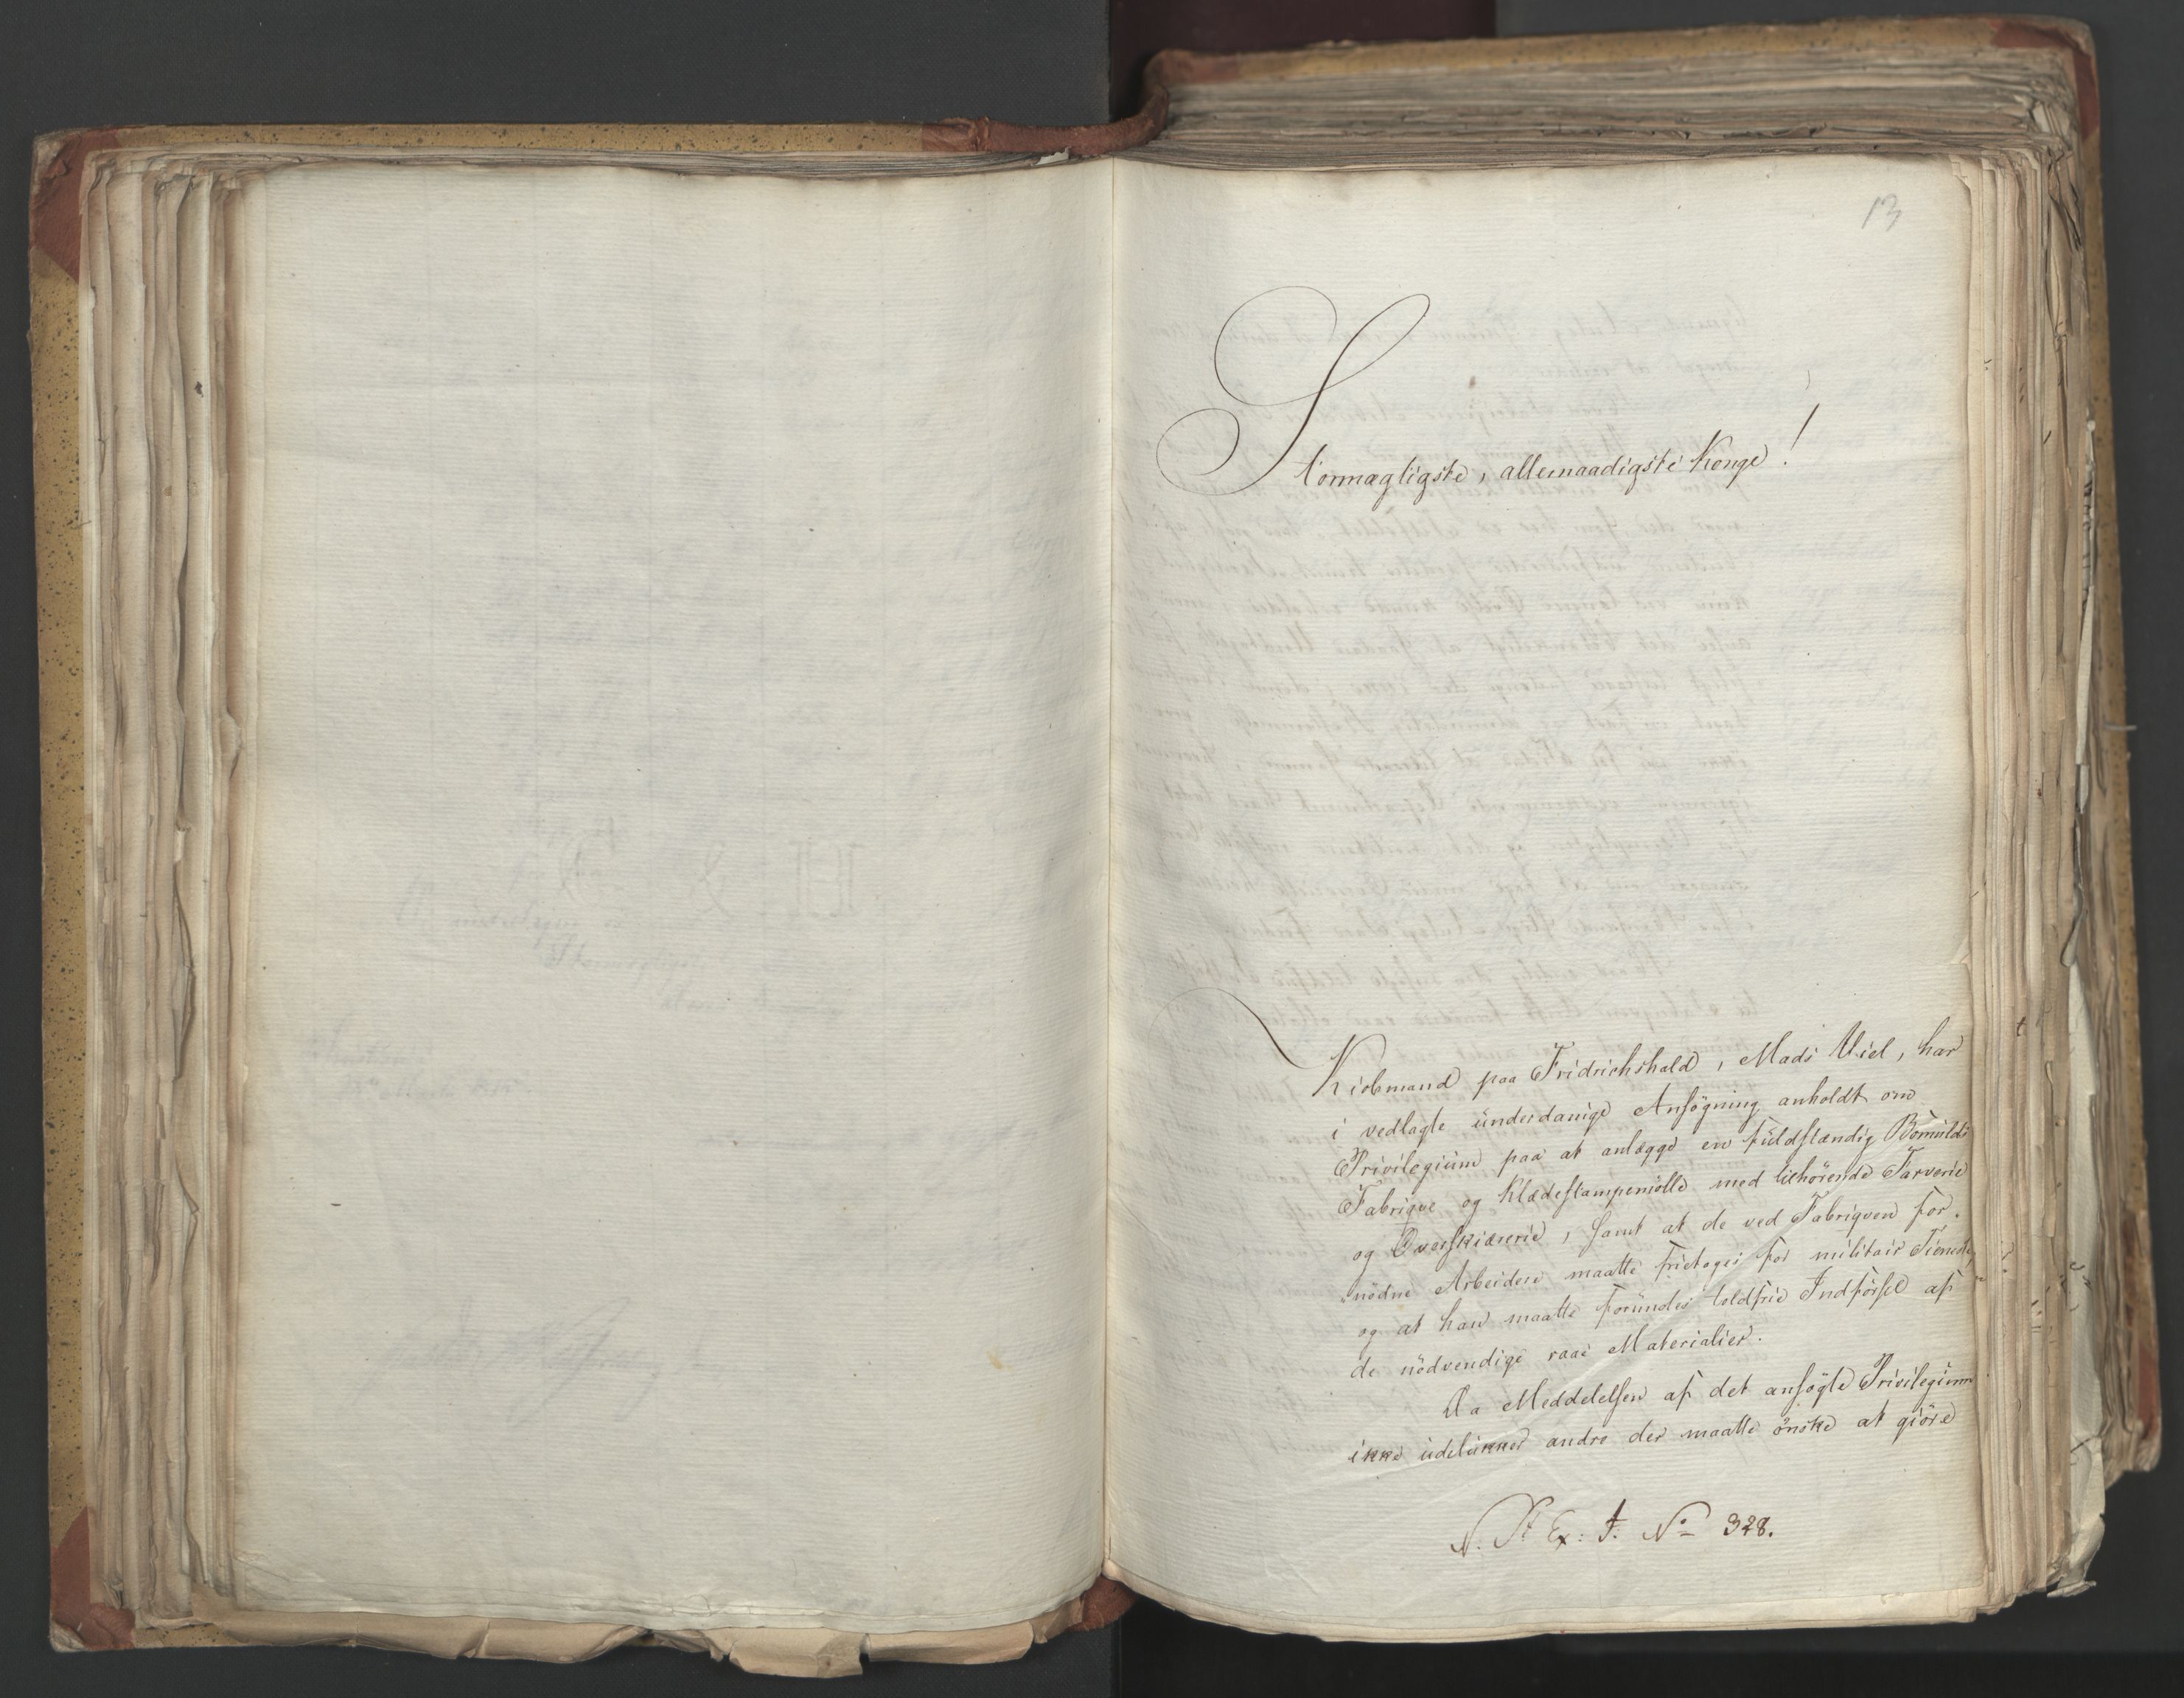 13
Stormægtigste, allernaadigste Konge!
Kiöbmand paa Fridrichshald, Mads Wiel, har
i vedlagte ünderdanige Ansögning anholdt om
Privilegiüm paa at anlægge en füldstændig Bomülds
Fabriqve og Klædestampemölle med tilhörende Farverie
og Overskiærerie, samt at de ved Fabriqven for-
"nödne Arbeidere maatte frietages for militair Tieneste,
og at han maatte foründes toldfrie Indförsel af
de nödvendige raae Materialier.
Da Meddelelsen af det ansögte Privilegiüm
ikke üdelükker andre der maatte önske at giöre
N. St. Ex: J. No 328.